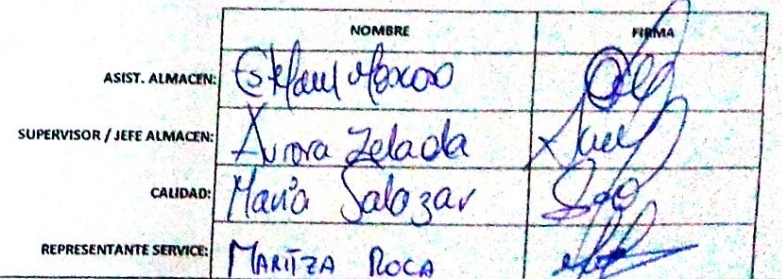 NOMBRE FIRMA
ASIST. ALMACEN:
SUPERVISOR / JEFE ALMACEN: Aurora Zelada
CALIDAD: María Salazar
REPRESENTANTE SERVICE: MARITZA ROCA